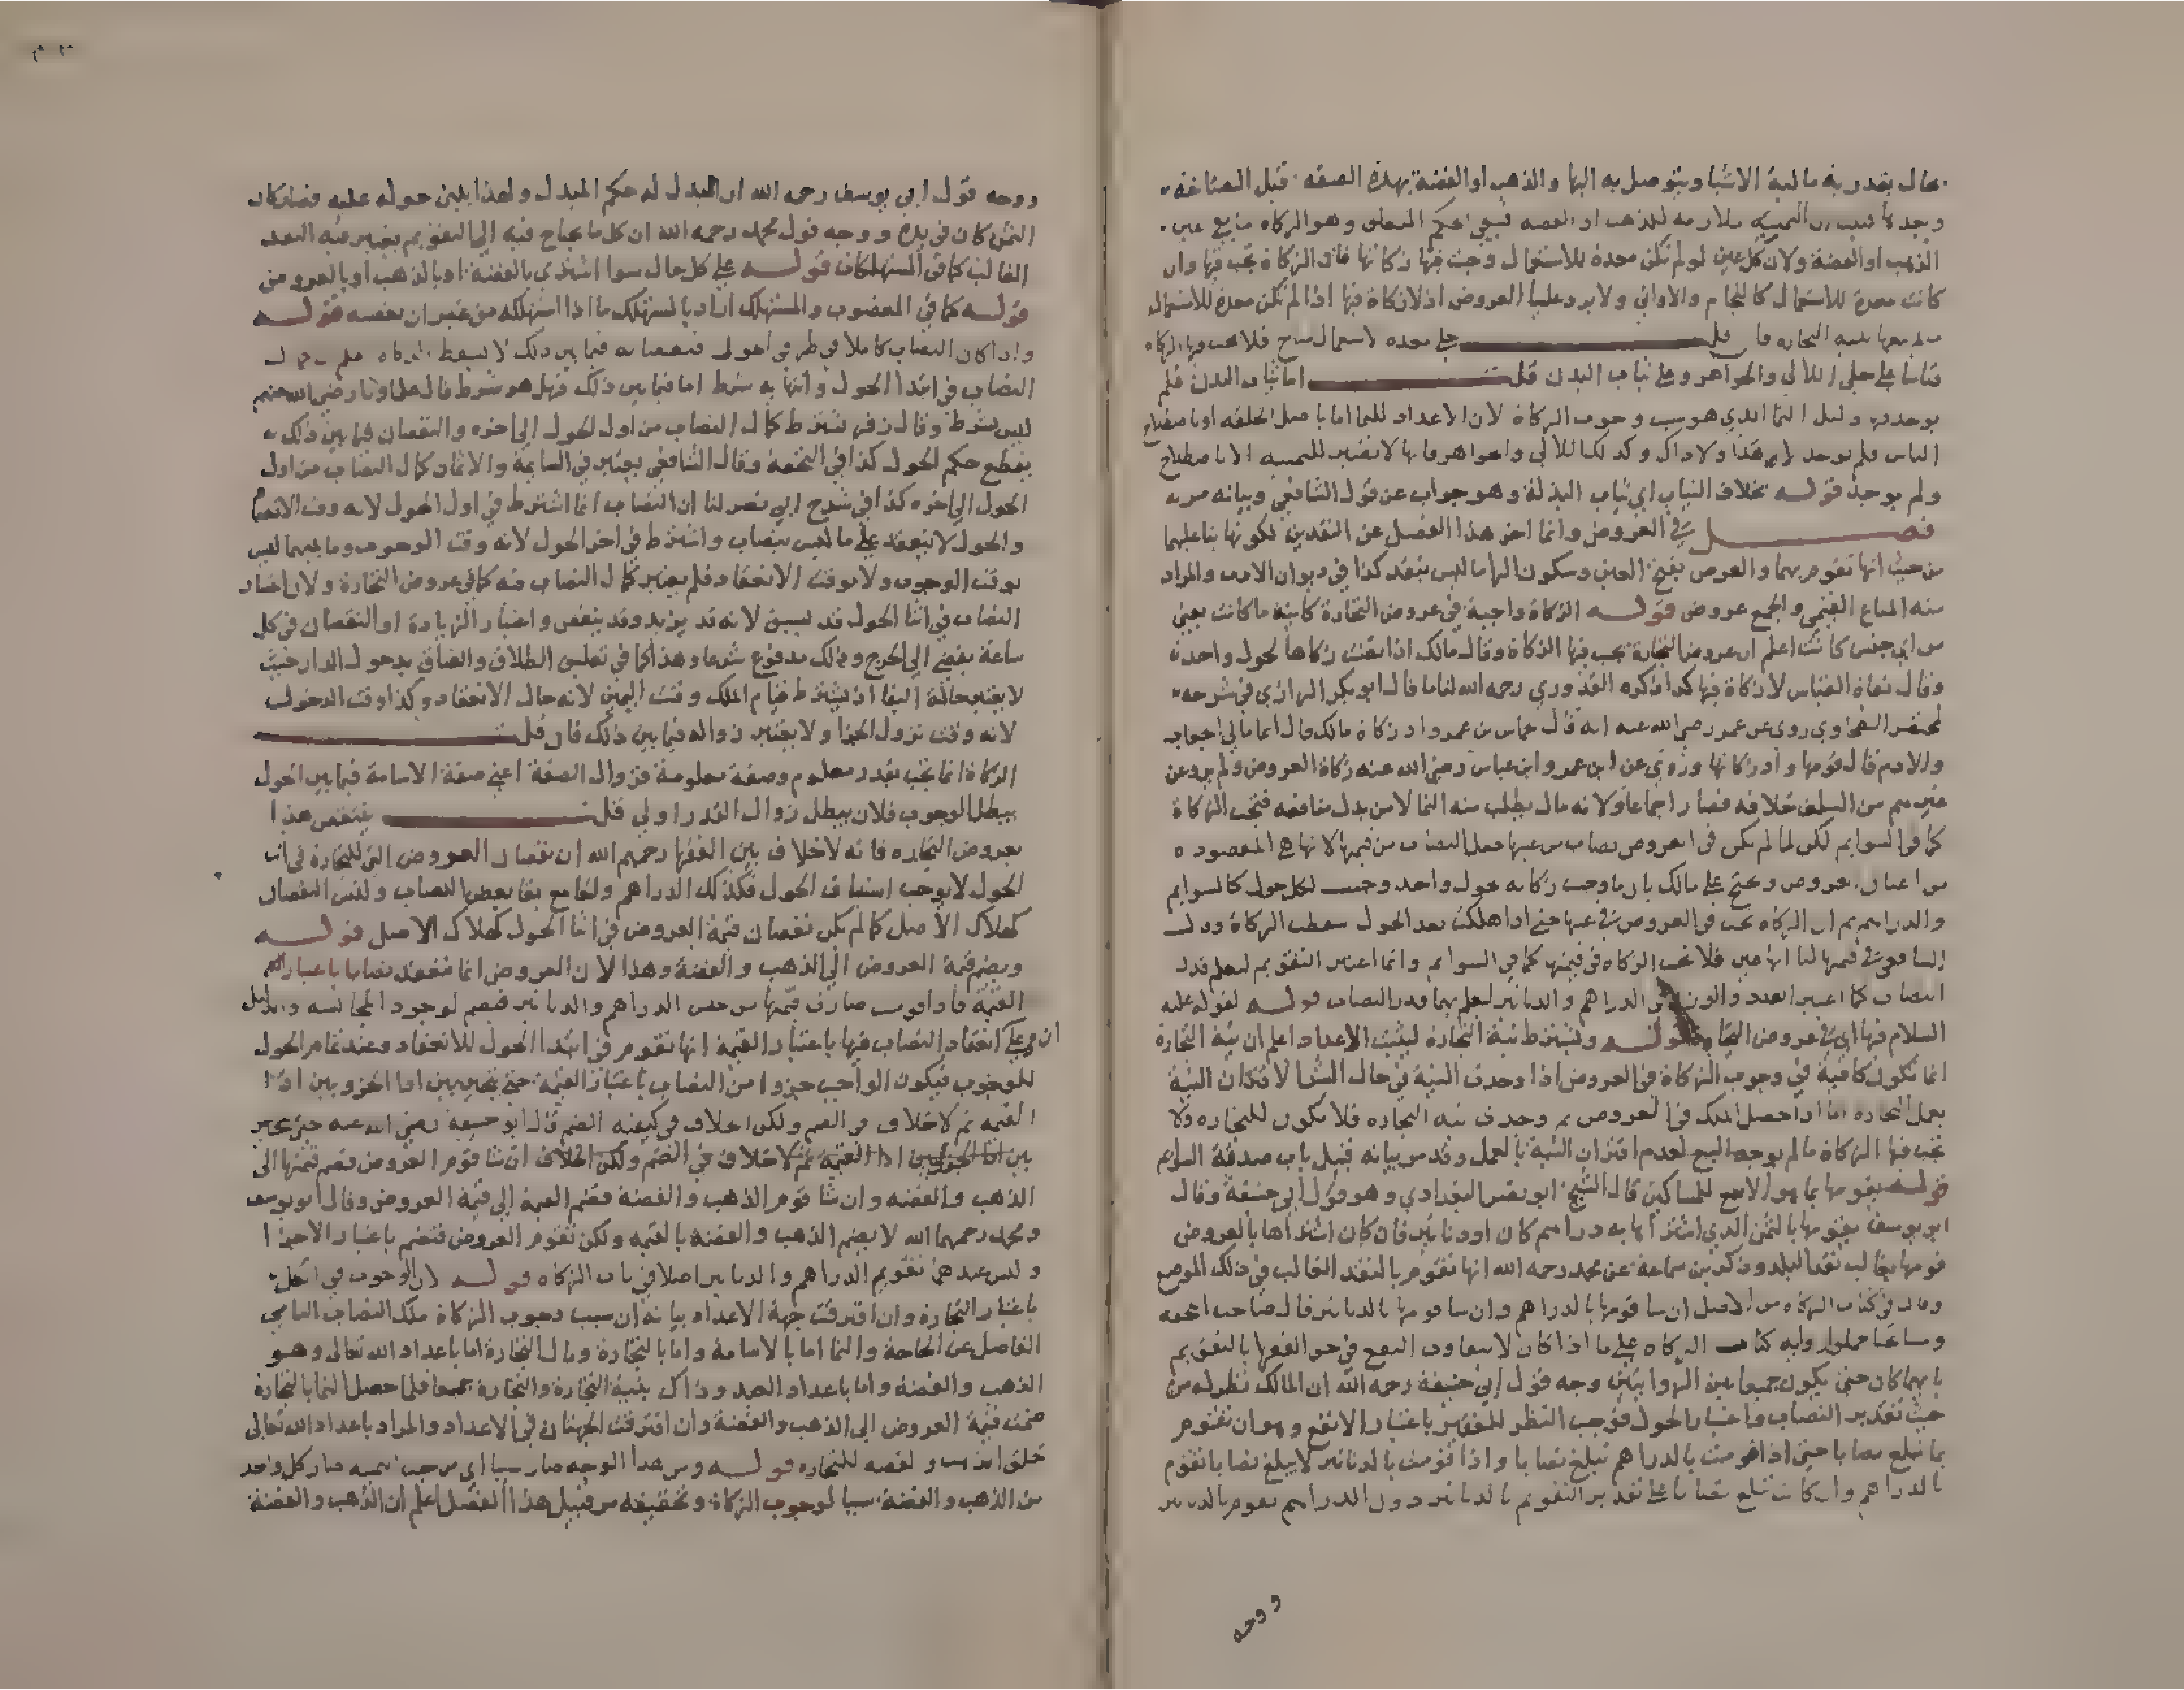 مال يقدر به مالية الاشيا ويتوصل به اليها والذهب او الفضة بهذه الصفة قبل الصياغة
وبعدها فيبقى حكم المتعلق وهو الزكاة
الذهب او الفضة ولان كل عين لو لم تكن معدة للاستعمال وجبت فيها زكاتها فاذا الزكاة تجب فيها وان
كانت معدة للاستعمال كالخاتم والاواني ولا يرد علينا العروض اذ لا زكاة فيها اذا لم تكن معدة للاستعمال
نية التجارة فان قلت حلي معدة لاستعمال مباح فلا تجب فيها الزكاة
قياسا على حلي اللآلي والجواهر وعلى ثياب البدن قلت اما ثياب البدن فلم
يوجد فيه دليل النما الذي هو سبب وجوب الزكاة لان الاعداد للنما اما باصل الخلقة او باصطلاح
الناس فلم يوجد لا هذا ولا ذاك وكذلك اللآلي والجواهر فانها لا تعتبر للثمنية الا باصطلاح
ولم يوجد قوله بخلاف الثياب اي ثياب البذلة وهو جواب عن قول الشافعي وبيانه مر به
فصل في العروض وانما اخر هذا الفصل عن النقدين لكونها بنا عليهما
من حيث انها تقوم بهما والعرض بفتح العين وسكون الرا ما ليس بنقد كذا في ديوان الادب والمراد
منه المتاع القيمي والجمع عروض قوله الزكاة واجبة في عروض التجارة كاينة ما كانت يعني
من اي جنس كانت اعلم ان عروض التجارة يجب فيها الزكاة وقال مالك اذا بقيت زكاها لحول واحد
وقال نفاة القياس لا زكاة فيها كذا ذكره القدوري رحمه الله لنا ما قال ابو بكر الرازي في شرحه
لمختصر الطحاوي روي عن عمر رضي الله عنه انه قال لحماس بن عمرو اد زكاة مالك قال انما مالي الجعاب
والادم قال قومها واد زكاتها وروي عن ابن عمر وابن عباس رضي الله عنه زكاة العروض ولم يرو عن
غيرهم من السلف خلافه فصار اجماعا ولانه مال يطلب منه النما لا من بدل منافعه فتجب الزكاة
كما في السوايم لكن لما لم يكن في العروض نصاب من عينها جعل النصاب من قيمتها لانها هي المقصودة
من اعيان العروض ونحتج على مالك بان ما وجب زكاته بحول واحد وجب لكل حول كالسوايم
والدراهم ثم ان الزكاة تجب في العروض في عينها حتى اذا هلكت بعد الحول سقطت الزكاة وقال
الشافعي في قيمتها لنا انها عين فلا تجب الزكاة في قيمتها كما في السوايم وانما اعتبر التقويم ليعلم قدر
النصاب كما اعتبر العدد والوزن في الدراهم والدنانير ليعلم بهما قدر النصاب قوله لقوله عليه
السلام فيها اي في عروض التجارة قوله ويشترط نية التجارة ليثبت الاعداد اعلم ان نية التجارة
انما تكون كافية في وجوب الزكاة في العروض اذا وجدت النية في حال الشرا لاقتران النية
بعمل التجارة اما اذا حصل الملك في العروض ثم وجدت نية التجارة فلا يكون للتجارة ولا
تجب فيها الزكاة ما لم يوجد البيع لعدم اقتران النية بالعمل وقد مر بيانه قبيل باب صدقة السوايم
قوله يقومها بما هو الانفع للمساكين قال الشيخ ابو نصر البغدادي وهو قول ابي حنيفة وقال
ابو يوسف يقومها بالثمن الذي اشتراها به دراهم كان او دنانير فان كان اشتراها بالعروض
قومها بغالب نقد البلد وذكر بن سماعة عن محمد رحمه الله انها تقوم بالنقد الغالب في ذلك الموضع
وقال في كتاب الزكاة من الاصل ان شا قومها بالدراهم وان شا قومها بالدنانير قال صاحب التحفة
ومشايخنا حملوا رواية كتاب الزكاة على ما اذا كان لا يتفاوت النفع في حق الفقرا بالتقويم
بايهما كان حتى يكون جمعا بين الروايتين وجه قول ابي حنيفة رحمه الله ان المالك نظر له من
حيث تقدير النصاب واعتبار الحول فوجب النظر للفقير باعتبار الانفع وهو ان تقوم
بما تبلغ نصابا حتى اذا قومت بالدراهم تبلغ نصابا واذا قومت بالدنانير لا يبلغ نصابا تقوم
بالدراهم وان كانت تبلغ نصابا على تقدير التقويم بالدنانير دون الدراهم يقوم بالدنانير
ووجه
ووجه قول ابي يوسف رحمه الله ان للبدل له حكم المبدل ولهذا يبني حوله عليه فصار كان
الثمن كان في يده ووجه قول محمد رحمه الله ان كل ما يحتاج فيه الى التقويم يعتبر فيه النقد
الغالب كما في المستهلكات قوله على كل حال سوا اشترى بالفضة او بالذهب او بالعروض
قوله كما في المغصوب والمستهلك اراد بالمستهلك ما اذا استهلكه من غير ان يغصبه قوله
واذا كان النصاب كاملا في طرفي الحول فنقصانه فيما بين ذلك لا يسقط الزكاة
النصاب في ابتدا الحول وانتهائه شرط اما فيما بين ذلك فهل هو شرط قال علماؤنا رضي الله عنهم
ليس بشرط وقال زفر يشترط كمال النصاب من اول الحول الى اخره والنقصان فيما بين ذلك
يقطع حكم الحول كذا في التحفة وقال الشافعي يعتبر في السايمة والاثمان كمال النصاب من اول
الحول الى اخره كذا في شرح ابي نصر لنا ان النصاب انما اشترط في اول الحول لانه وقت الانعقاد
والحول لا ينعقد على ما ليس بنصاب واشترط في اخر الحول لانه وقت الوجوب وما بينهما ليس
بوقت الوجوب ولا بوقت الانعقاد فلم يعتبر كمال النصاب فيه كما في عروض التجارة ولان اعتبار
النصاب في اثنا الحول قد لانه قد يزيد وقد ينقص واعتبار الزيادة او النقصان في كل
ساعة يفضي الى الحرج وذلك مدفوع شرعا وهذا كما في تعليق الطلاق والعتاق بدخول الدار حيث
لا يعتبر حالة البقا اذ يشترط قيام الملك وقت اليمين لانه حال الانعقاد وكذا وقت الدخول
لانه وقت نزول الجزا ولا يعتبر زواله فيما بين ذلك فان قلت
الزكاة انما تجب بقدر معلوم وصفة معلومة فزوال الصفة اعني صفة الاسامة فيما بين الحول
يبطل الوجوب فلان يبطل زوال القدر اولى قلت ينتقض هذا
بعروض التجارة فانه لا خلاف بين الفقها رحمهم الله ان نقصان العروض التي للتجارة في اثنا
الحول لا يوجب استيناف الحول فكذلك الدراهم والجامع بقا بعض النصاب وليس النقصان
كهلاك الاصل كما لم يكن نقصان قيمة العروض في اثنا الحول كهلاك الاصل قوله
ويضم قيمة العروض الى الذهب والفضة وهذا لان العروض انما تنعقد نصابا باعتبار
القيمة فاذا قومت صارت قيمتها من جنس الدراهم والدنانير فتضم لوجود المجانسة والدليل
على ان انعقاد النصاب فيها باعتبار القيمة انها تقوم في ابتدا الحول للانعقاد وعند تمام الحول
للوجوب فيكون الواجب جزوا من النصاب باعتبار القيمة حتى يخير بين ادا الجزو وبين ادا
القيمة ثم لا خلاف في الضم ولكن الخلاف في كيفية الضم قال ابو حنيفة رضي الله عنه حتى يخير
بين ادا القيمة ثم لا خلاف في الضم ولكن الخلاف ان شا قوم العروض فضم قيمتها الى
الذهب والفضة وان شا قوم الذهب والفضة فضم القيمة الى قيمة العروض وقال ابو يوسف
ومحمد رحمهما الله لا يضم الذهب والفضة بالقيمة ولكن تقوم العروض فتضم باعتبار الاجزا
وليس عندهما تقويم الدراهم والدنانير اصلا في باب الزكاة قوله لان الوجوب في الكل
باعتبار التجارة وان افترقت جهة الاعداد بيانه ان سبب وجوب الزكاة ملك النصاب النامي
الفاضل عن الحاجة والنما اما بالاسامة واما بالتجارة ومال التجارة اما باعداد الله تعالى وهو
الذهب والفضة واما باعداد العبد وذاك بنية التجارة والتجارة جميعا فلما حصل النما بالتجارة
ضمت قيمة العروض الى الذهب والفضة وان افترقت الجهتان في الاعداد والمراد باعداد الله تعالى
خلق الذهب والفضة للتجارة قوله ومن هذا الوجه صار سببا اي من حيث الثمنية صار كل واحد
من الذهب والفضة سببا لوجوب الزكاة وتحقيقه من قبيل هذا الفصل اعلم ان الذهب والفضة